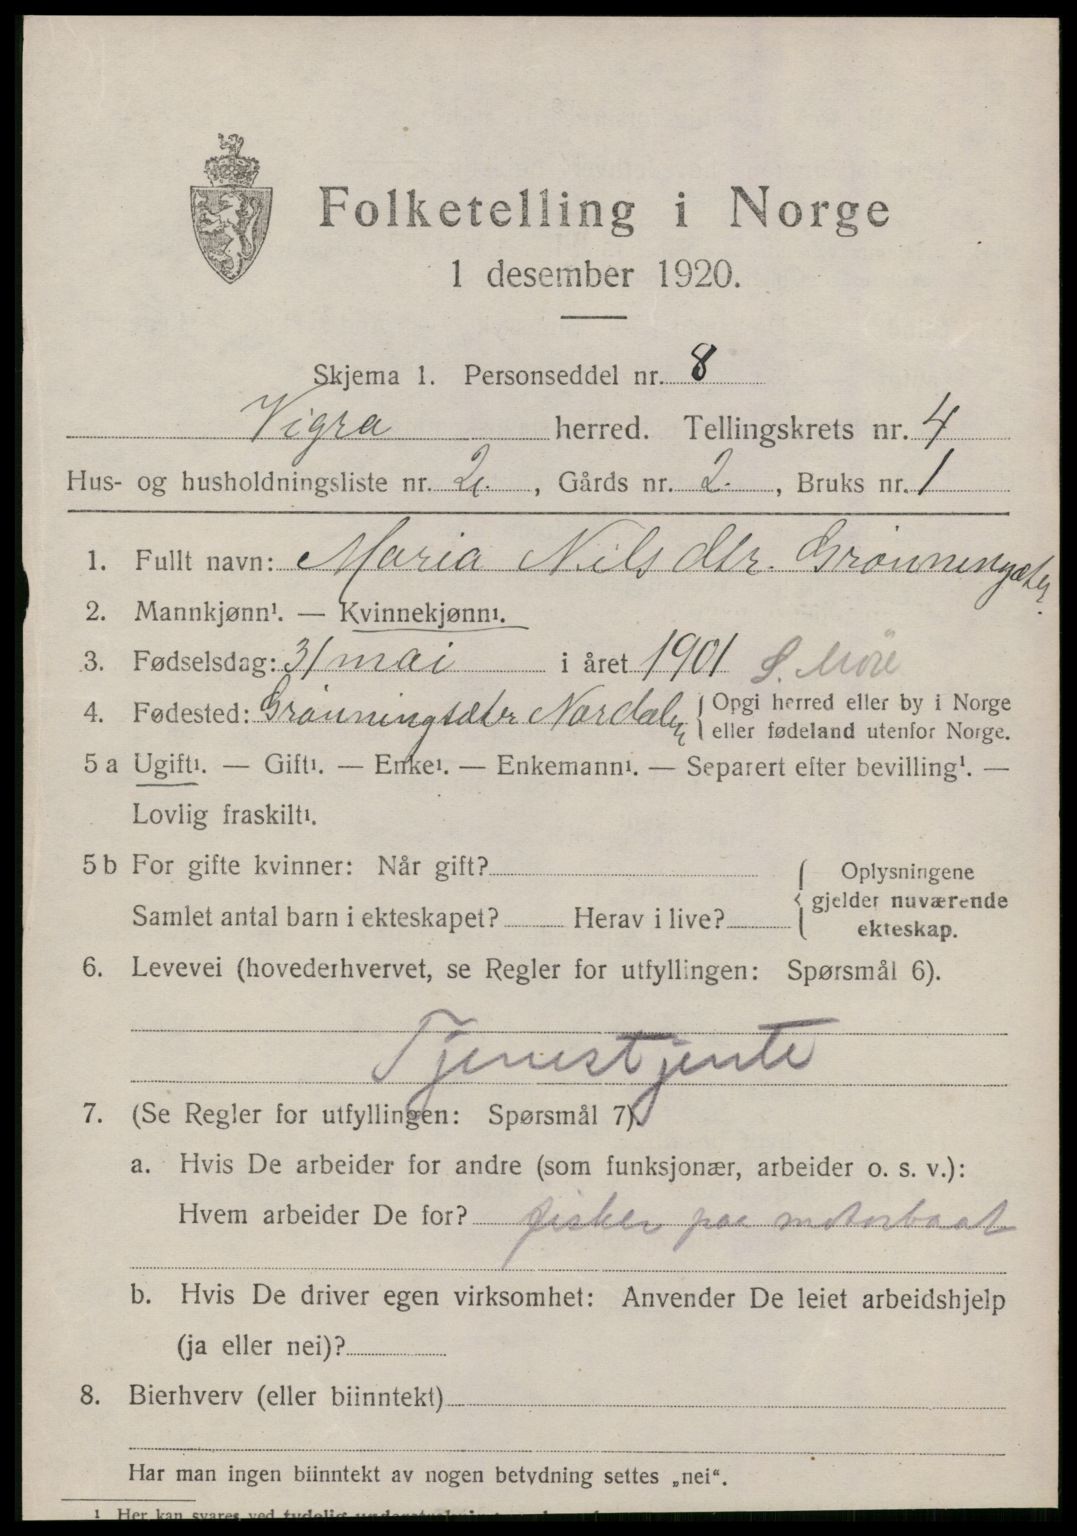 Folketelling i Norge
1 desember 1920.
Skjema 1. Personseddel nr. 8
Vigra herred. Tellingskrets nr. 4
Hus- og husholdningsliste nr. 2. , Gårds nr. 2. , Bruks nr. 1
1. Fullt navn: Maria Nilsdtr. Grønningsæter
2. Mannkjønn¹. — Kvinnekjønn¹.
3. Fødselsdag: 31 mai i året 1901 S. Möre
4. Fødested: Grønningsæter Nordalen { Opgi herred eller by i Norge
eller fødeland utenfor Norge.
5 a Ugift¹. — Gift¹. — Enke¹. — Enkemann¹. — Separert efter bevilling¹. —
Lovlig fraskilt¹.
5 b For gifte kvinner: Når gift?
Samlet antal barn i ekteskapet? Herav i live?
{ Oplysningene
gjelder nuværende
ekteskap.
6. Levevei (hovederhvervet, se Regler for utfyllingen: Spørsmål 6).
Tjenestjente
7. (Se Regler for utfyllingen: Spørsmål 7).
a. Hvis De arbeider for andre (som funksjonær, arbeider o. s. v.):
Hvem arbeider De for? fisker paa motorbaat
b. Hvis De driver egen virksomhet: Anvender De leiet arbeidshjelp
(ja eller nei)?
8. Bierhverv (eller biinntekt)
Har man ingen biinntekt av nogen betydning settes „nei“.
¹ Her kan svares ved tydelig